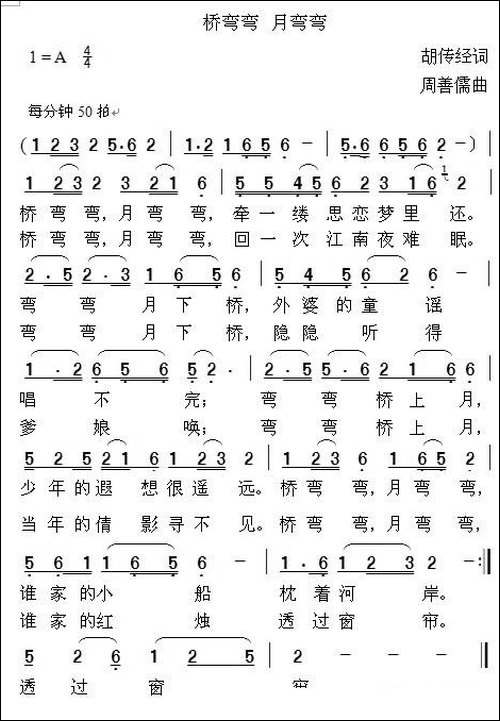 桥弯弯 月弯弯
1=A 4/4
胡传经词
周善儒曲
每分钟50拍
(1 2 3 2 5·6 2 | 1·2 1 6 5 6 - | 5·6 6 5 6 2 - )|
1 2 3 2 3 2 1 6 | 5 5 4 5 6 2 3 1 6 1 2 |
桥弯弯,月弯弯,牵一缕思恋梦里还。
桥弯弯,月弯弯,回一次江南夜难眠。
2·5 2·3 1 6 5 6 | 5 4 5 6 2 6 - |
弯弯月下桥,外婆的童谣
弯弯月下桥,隐隐听得
1·2 6 5 6 5 2· | 2·5 5·6 2 1 6 6 |
唱不完;弯弯桥上月,
爹娘唤;弯弯桥上月,
5 2 5 2 1 6 1 2 3 2 | 1 2 3 6 1 6 5 5 |
少年的遐想很遥远。桥弯弯,月弯弯,
当年的倩影寻不见。桥弯弯,月弯弯,
5 6 1 1 6 5 6 - | 1·6 1 2 3 2 - :|
谁家的小船枕着河岸。
谁家的红烛透过窗帘。
5 2 6 1 2 5 | 2 - - - |
透过窗帘